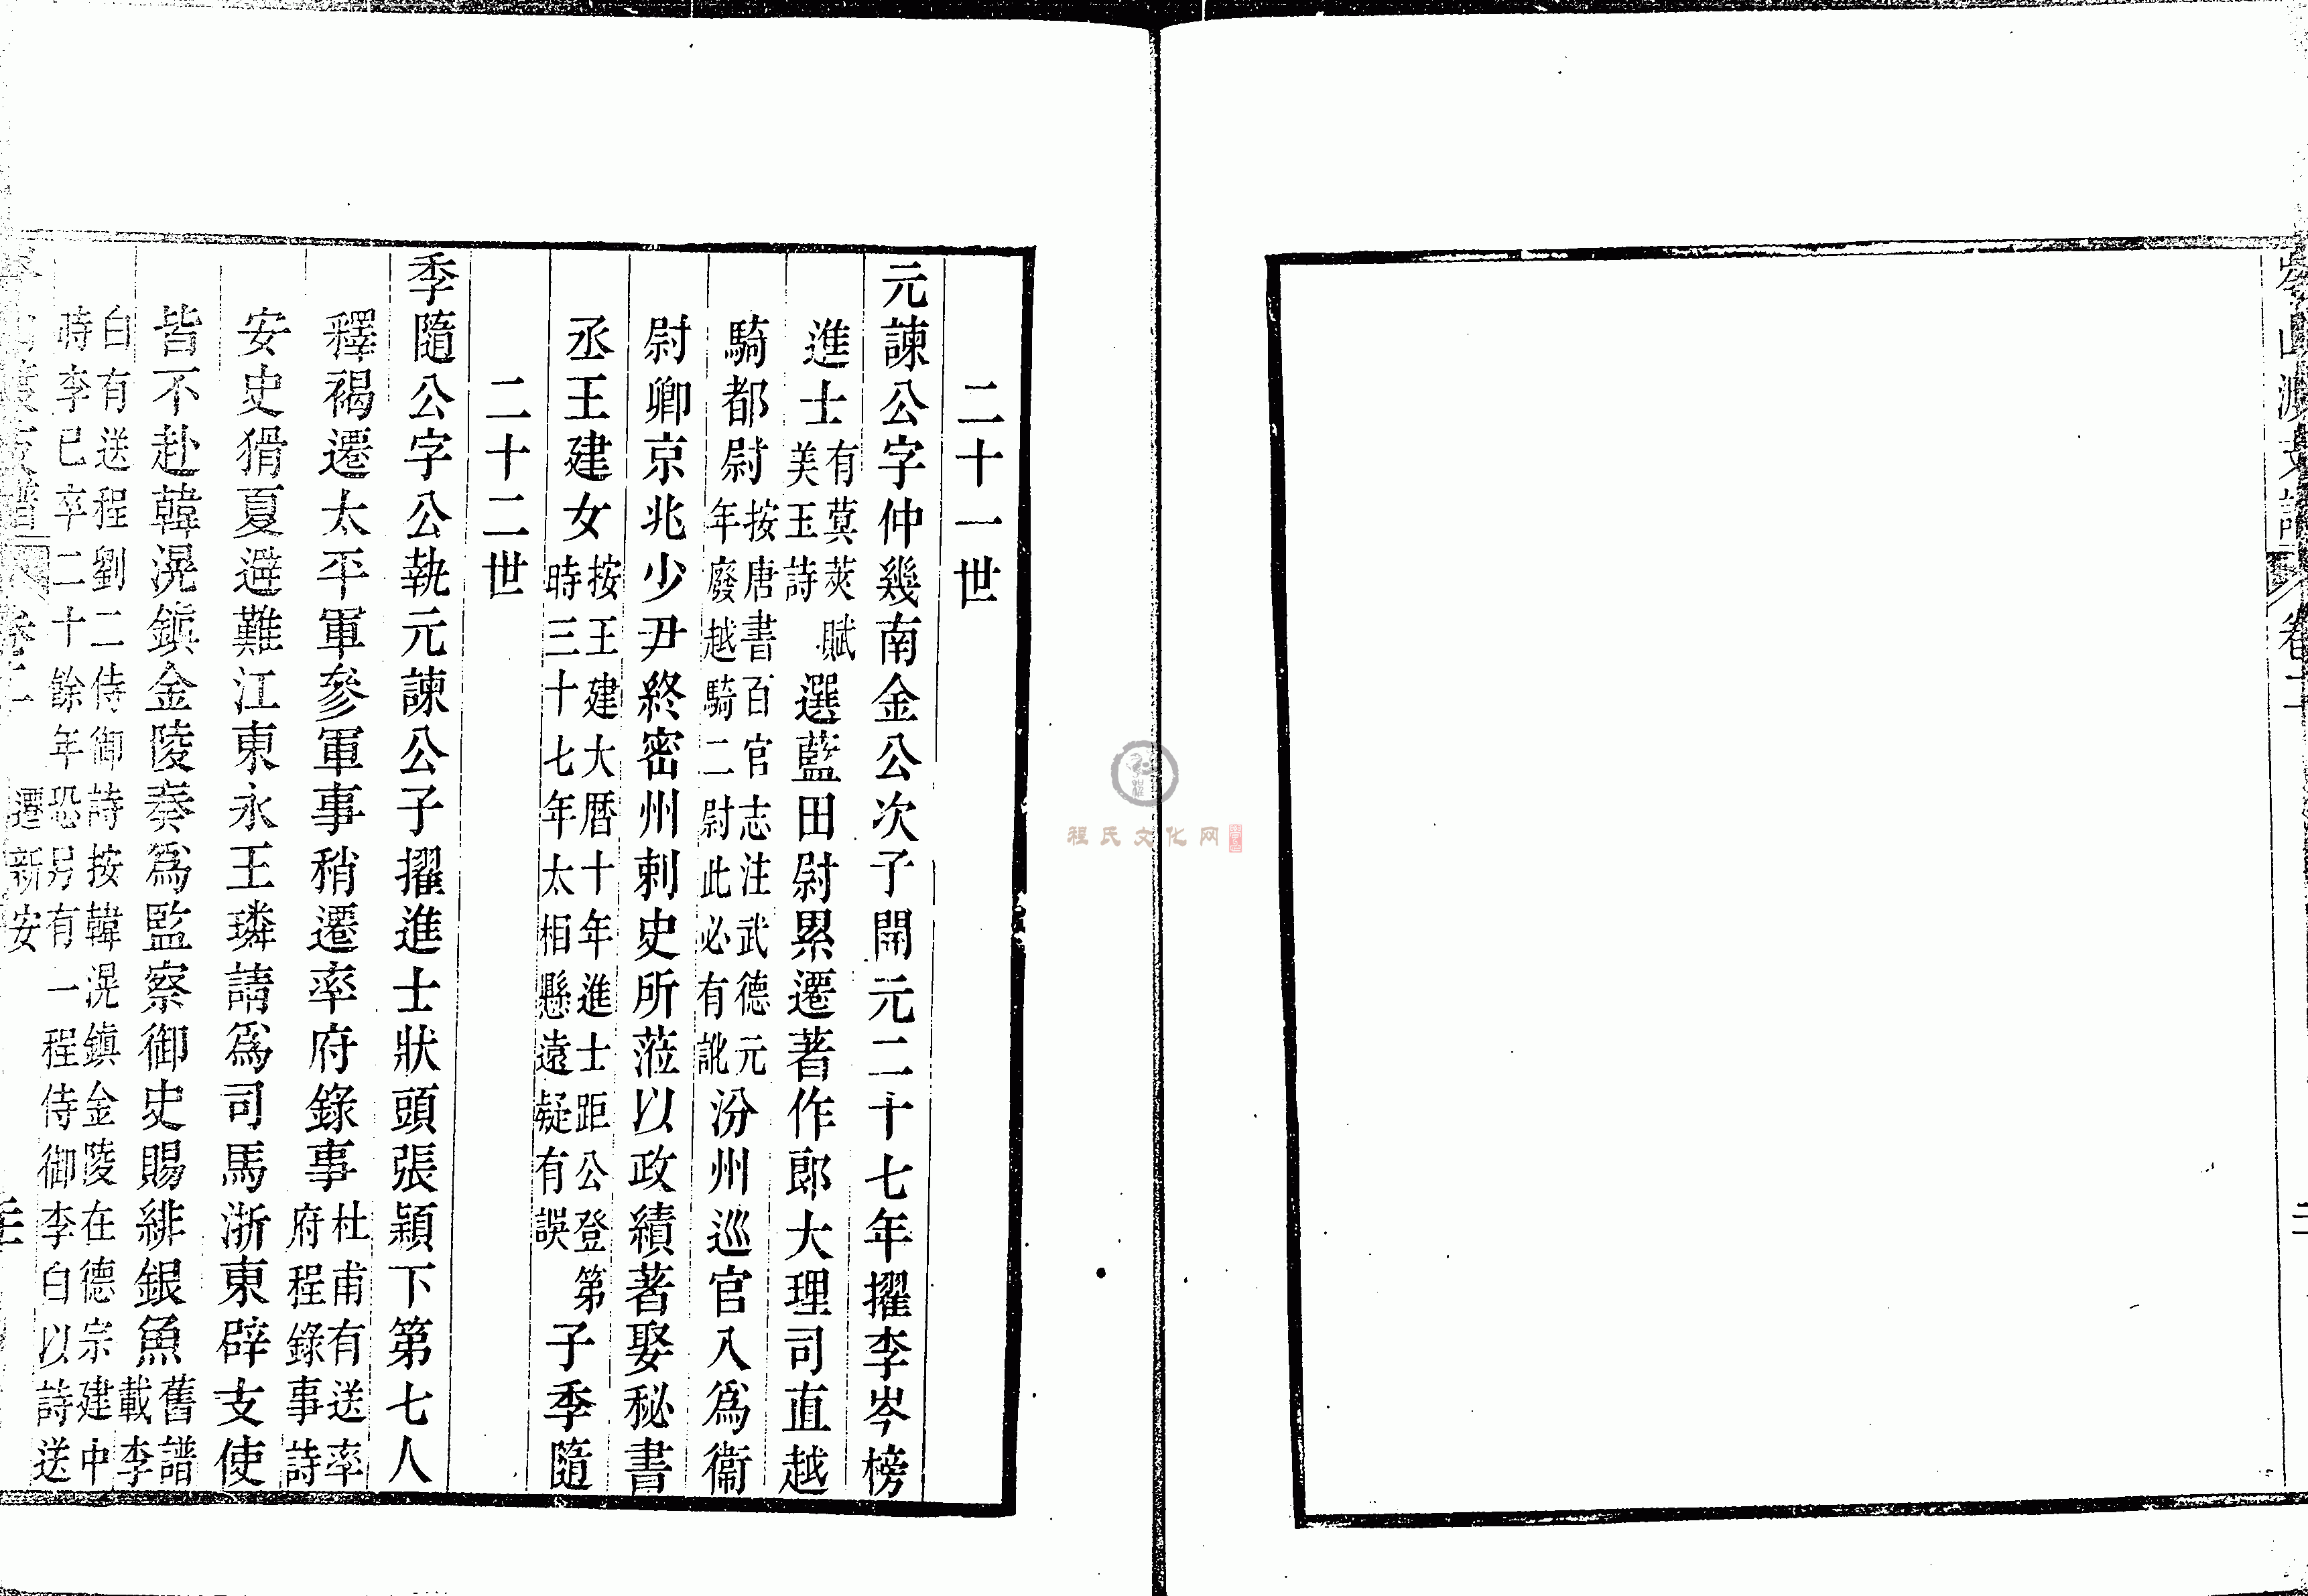 卷二
二十一世
元諫公字仲幾南金公次子開元二十七年擢李岑榜
進士有蓂莢賦美玉詩選藍田尉累遷著作郎大理司直越
騎都尉按唐書百官志注武德元年廢越騎二尉此必有訛汾州巡官入為衞
尉卿京兆少尹終密州剌史所蒞以政績著娶秘書
丞王建女按王建大曆十年進士距公登第時三十七年太相懸遠疑有誤子季隨
二十二世
季隨公字公執元諫公子擢進士狀頭張穎下第七人
釋褐遷太平軍參軍事稍遷率府錄事杜甫有送率府程錄事詩
安史猾夏避難江東永王璘請爲司馬浙東辟支使
皆不赴韓滉鎮金陵奏爲監察御史賜緋銀魚舊譜載李
白有送程劉二侍御詩按韓滉鎮金陵在德宗建中
時李已卒二十餘年恐另有一程侍御李白以詩送
遷新安
程氏文化网